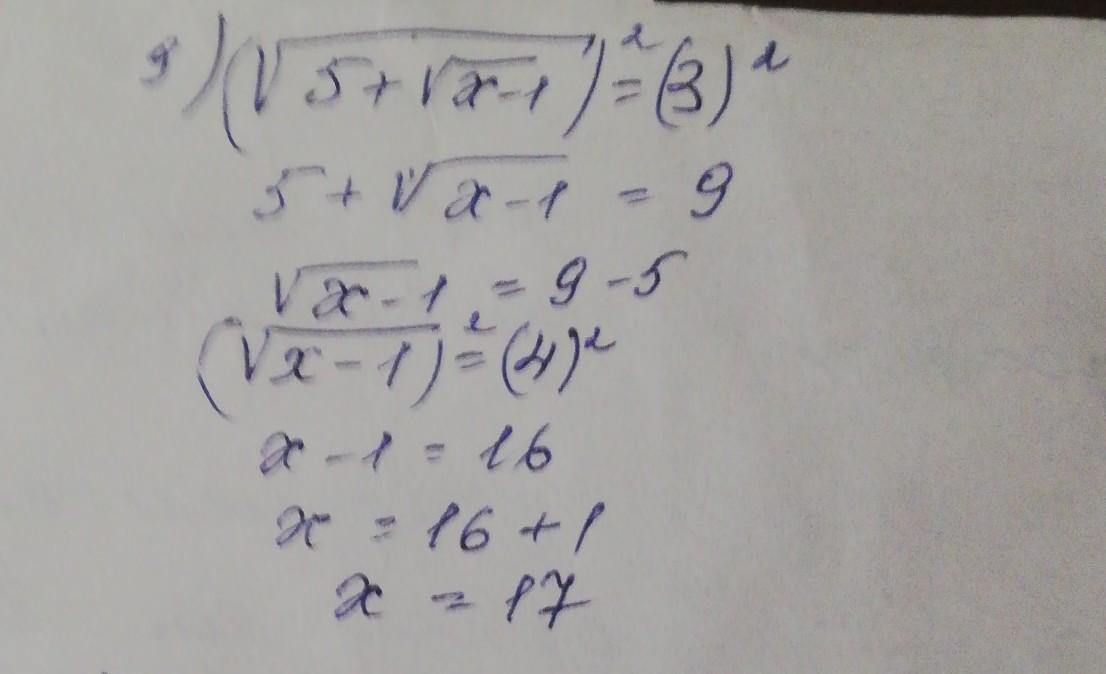 9) (√(5+√(x-1)))² = (3)²
5 + √(x-1) = 9
√(x-1) = 9 - 5
(√(x-1))² = (4)²
x - 1 = 16
x = 16 + 1
x = 17